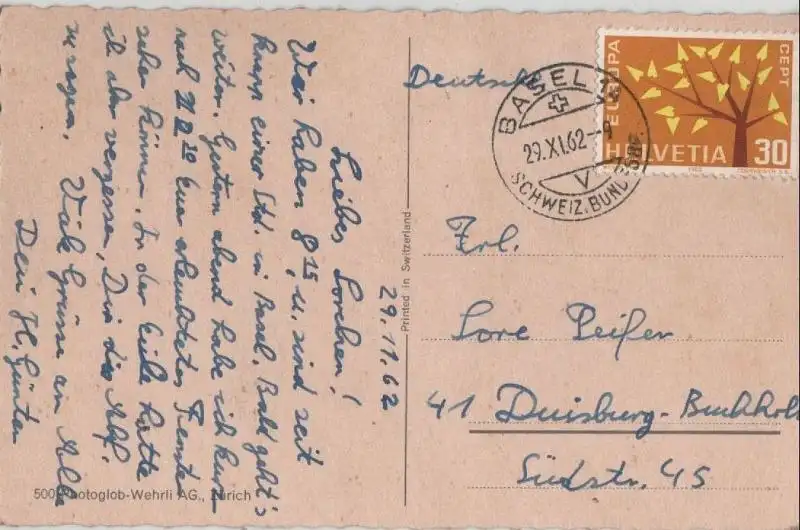 29.11.62
Liebes Lorchen!
Wir haben 8¹⁵ u. sind seit
knapp einer Std. in Basel. Bald geht's
weiter. Gestern abend habe ich kurz
nach 21²⁰ Euer erleuchtetes Fenster
sehen können. In der Eile hatte
ich aber vergessen, Dir dies
zu sagen. Viele Grüsse an Alle
Dein H. Günter
500 Photoglob-Wehrli AG., Zürich
Printed in Switzerland
Deutschl
BASEL 2
29.XI.62--9
V
SCHWEIZ. BUND
EUROPA
CEPT
HELVETIA 30
Frl.
Lore Peifer
41 Duisburg-Buchholz
Südstr. 45